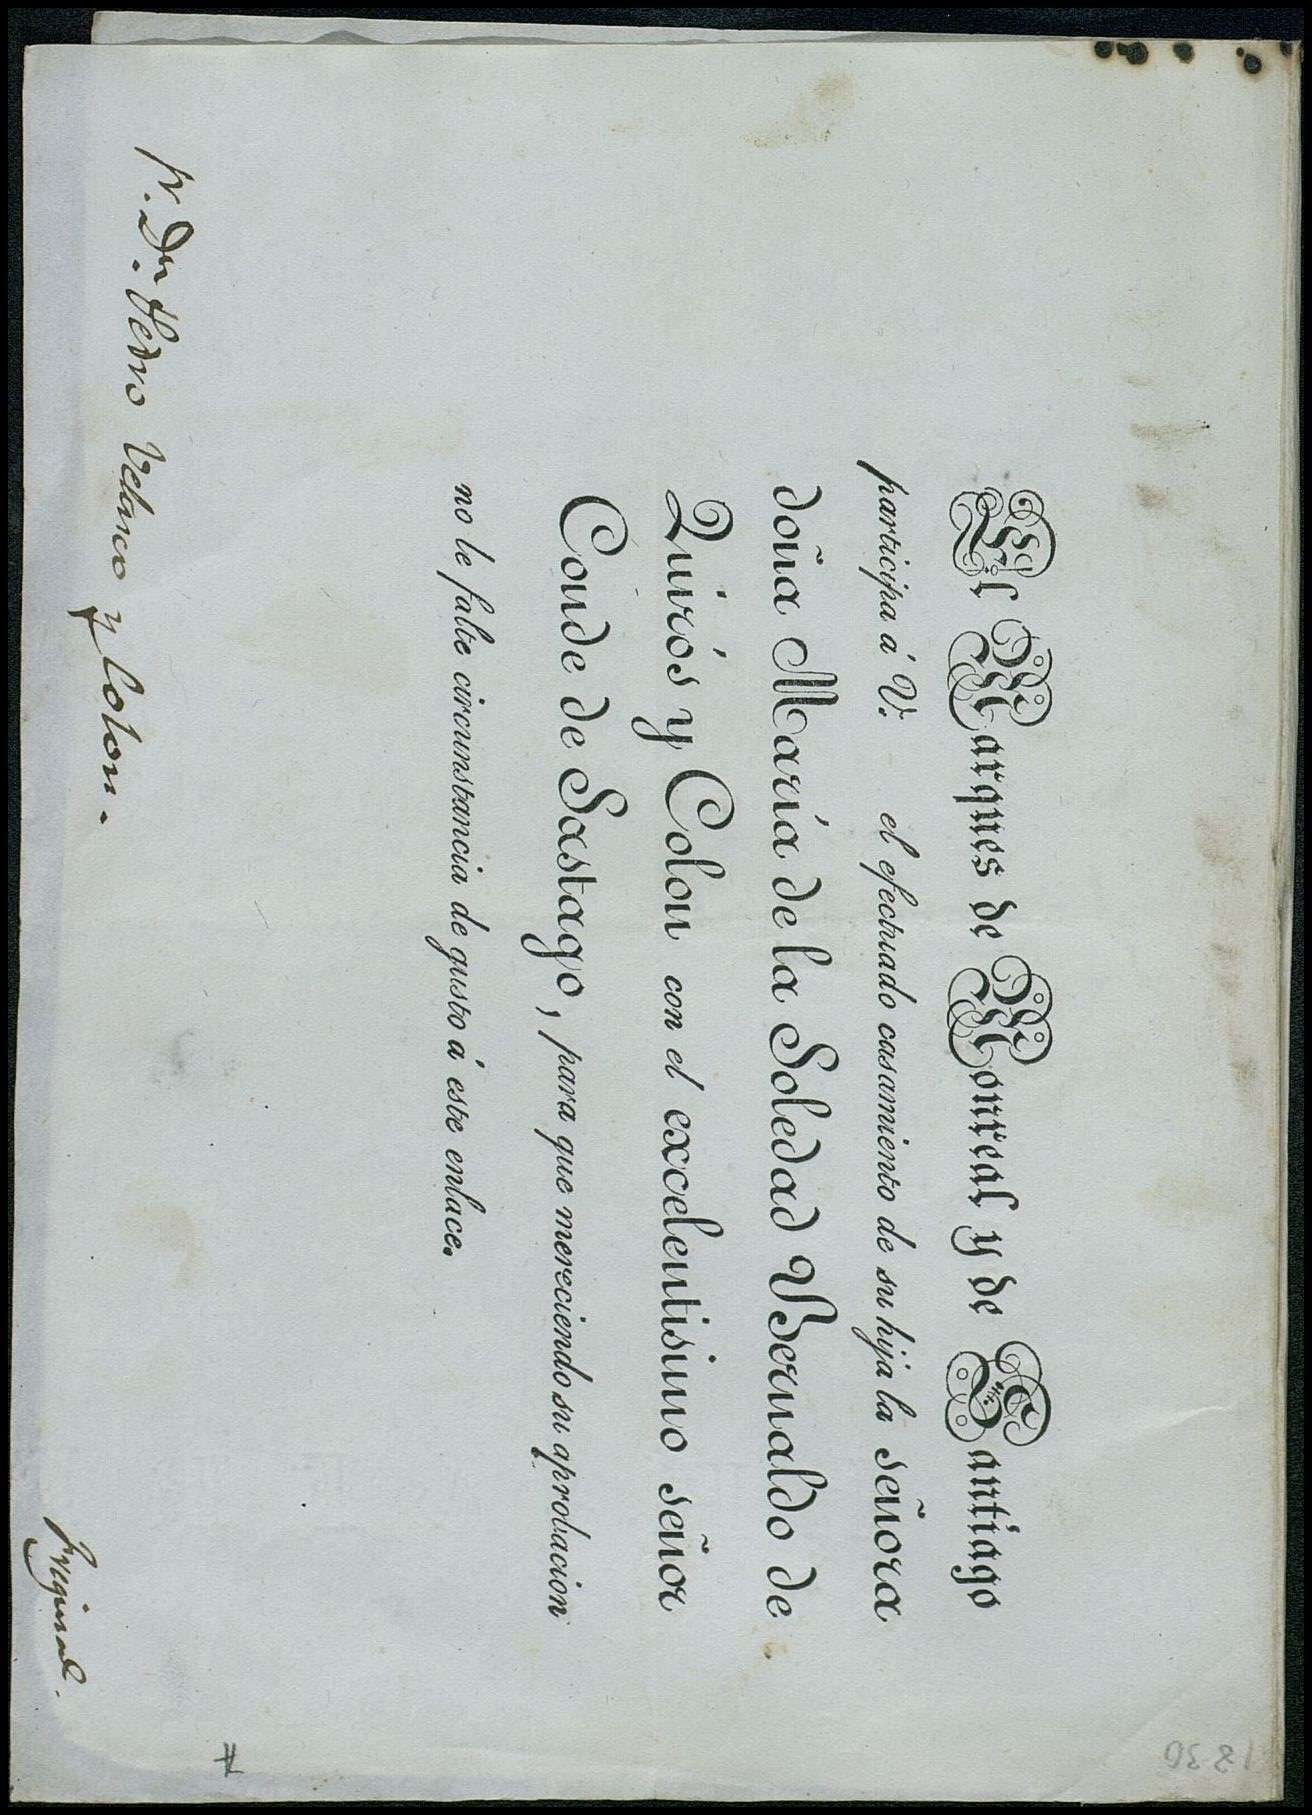 El Marques de Monreal y de Santiago
participa á V. el efectuado casamiento de su hija la señora
doña María de la Soledad Bernaldo de
Quirós y Colon con el excelentisimo señor
Conde de Sastago, para que mereciendo su aprobacion
no le falte circunstancia de gusto á este enlace.
Sr. Dn. Pedro Velasco y Colon.